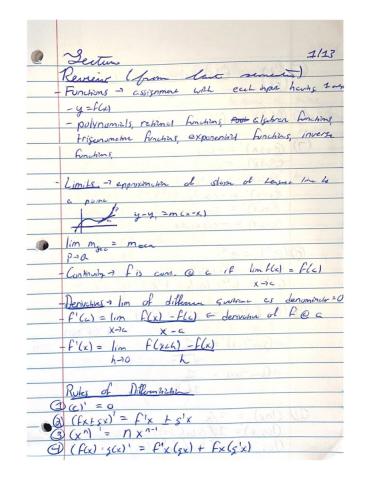 Lecture 1/13
Review (from last semester)
- Functions → assignment with each input having 1
- y = f(x)
- polynomials, rational functions, algebraic functions,
trigonometric functions, exponential functions, inverse
functions,
- Limits → approximation of slope of tangent line to
a point
y-y₁ = m(x-x)
lim m_sec = m
p→a
- Continuity → f is cont. @ c if lim f(x) = f(c)
x→c
- Derivatives → lim of difference quotient as denominator → 0
- f'(c) = lim f(x) - f(c) ← derivative of f @ c
x→c x - c
- f'(x) = lim f(x+h) - f(x)
h→0 h
Rules of Differentiation
① (c)' = 0
② (fx ± gx)' = f'x ± g'x
③ (xⁿ)' = n xⁿ⁻¹
④ (f(x) · g(x)' = f'x (gx) + fx (g'x)